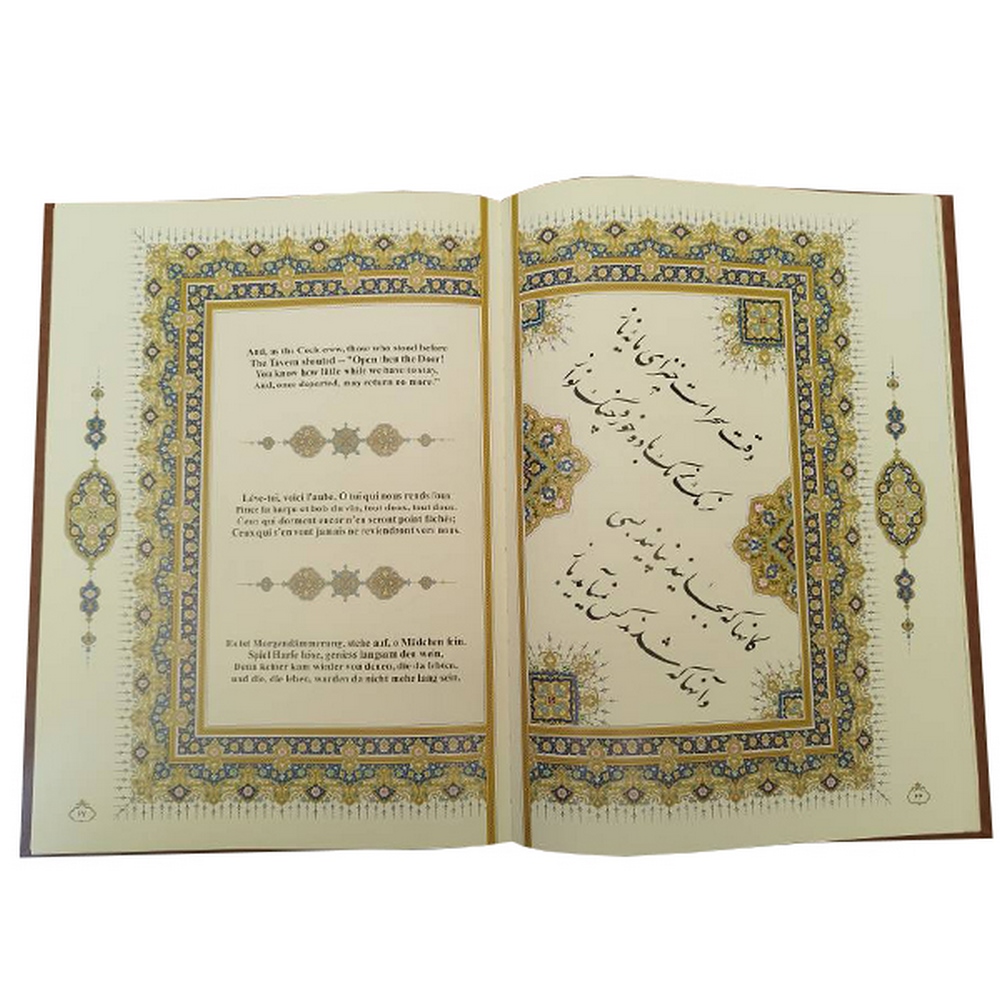 وقت سحر است خیز ای مایه ناز
نرمک نرمک باده خور و چنگ نواز
کانها که بجایند نپایند بسی
وآنها که شدند کس نمیآید باز
۶۶
And, as the Cock crew, those who stood before
The Tavern shouted -- "Open then the Door!
You know how little while we have to stay,
And, once departed, may return no more."
Lève-toi, voici l'aube, O toi qui nous rends fous
Pince ta harpe et bob du vin, tout doux, tout doux.
Ceux qui dorment encor n'en seront point fâchés;
Ceux qui s'en vont jamais ne reviendront vers nous.
Es ist Morgendämmerung, stehe auf, o Mädchen fein.
Spiel Harfe leise, geniess langsam den wein,
Denn keiner kam wieder von denen, die da lebten,
und die, die leben, warden da nicht mehe lang sein.
۶۷